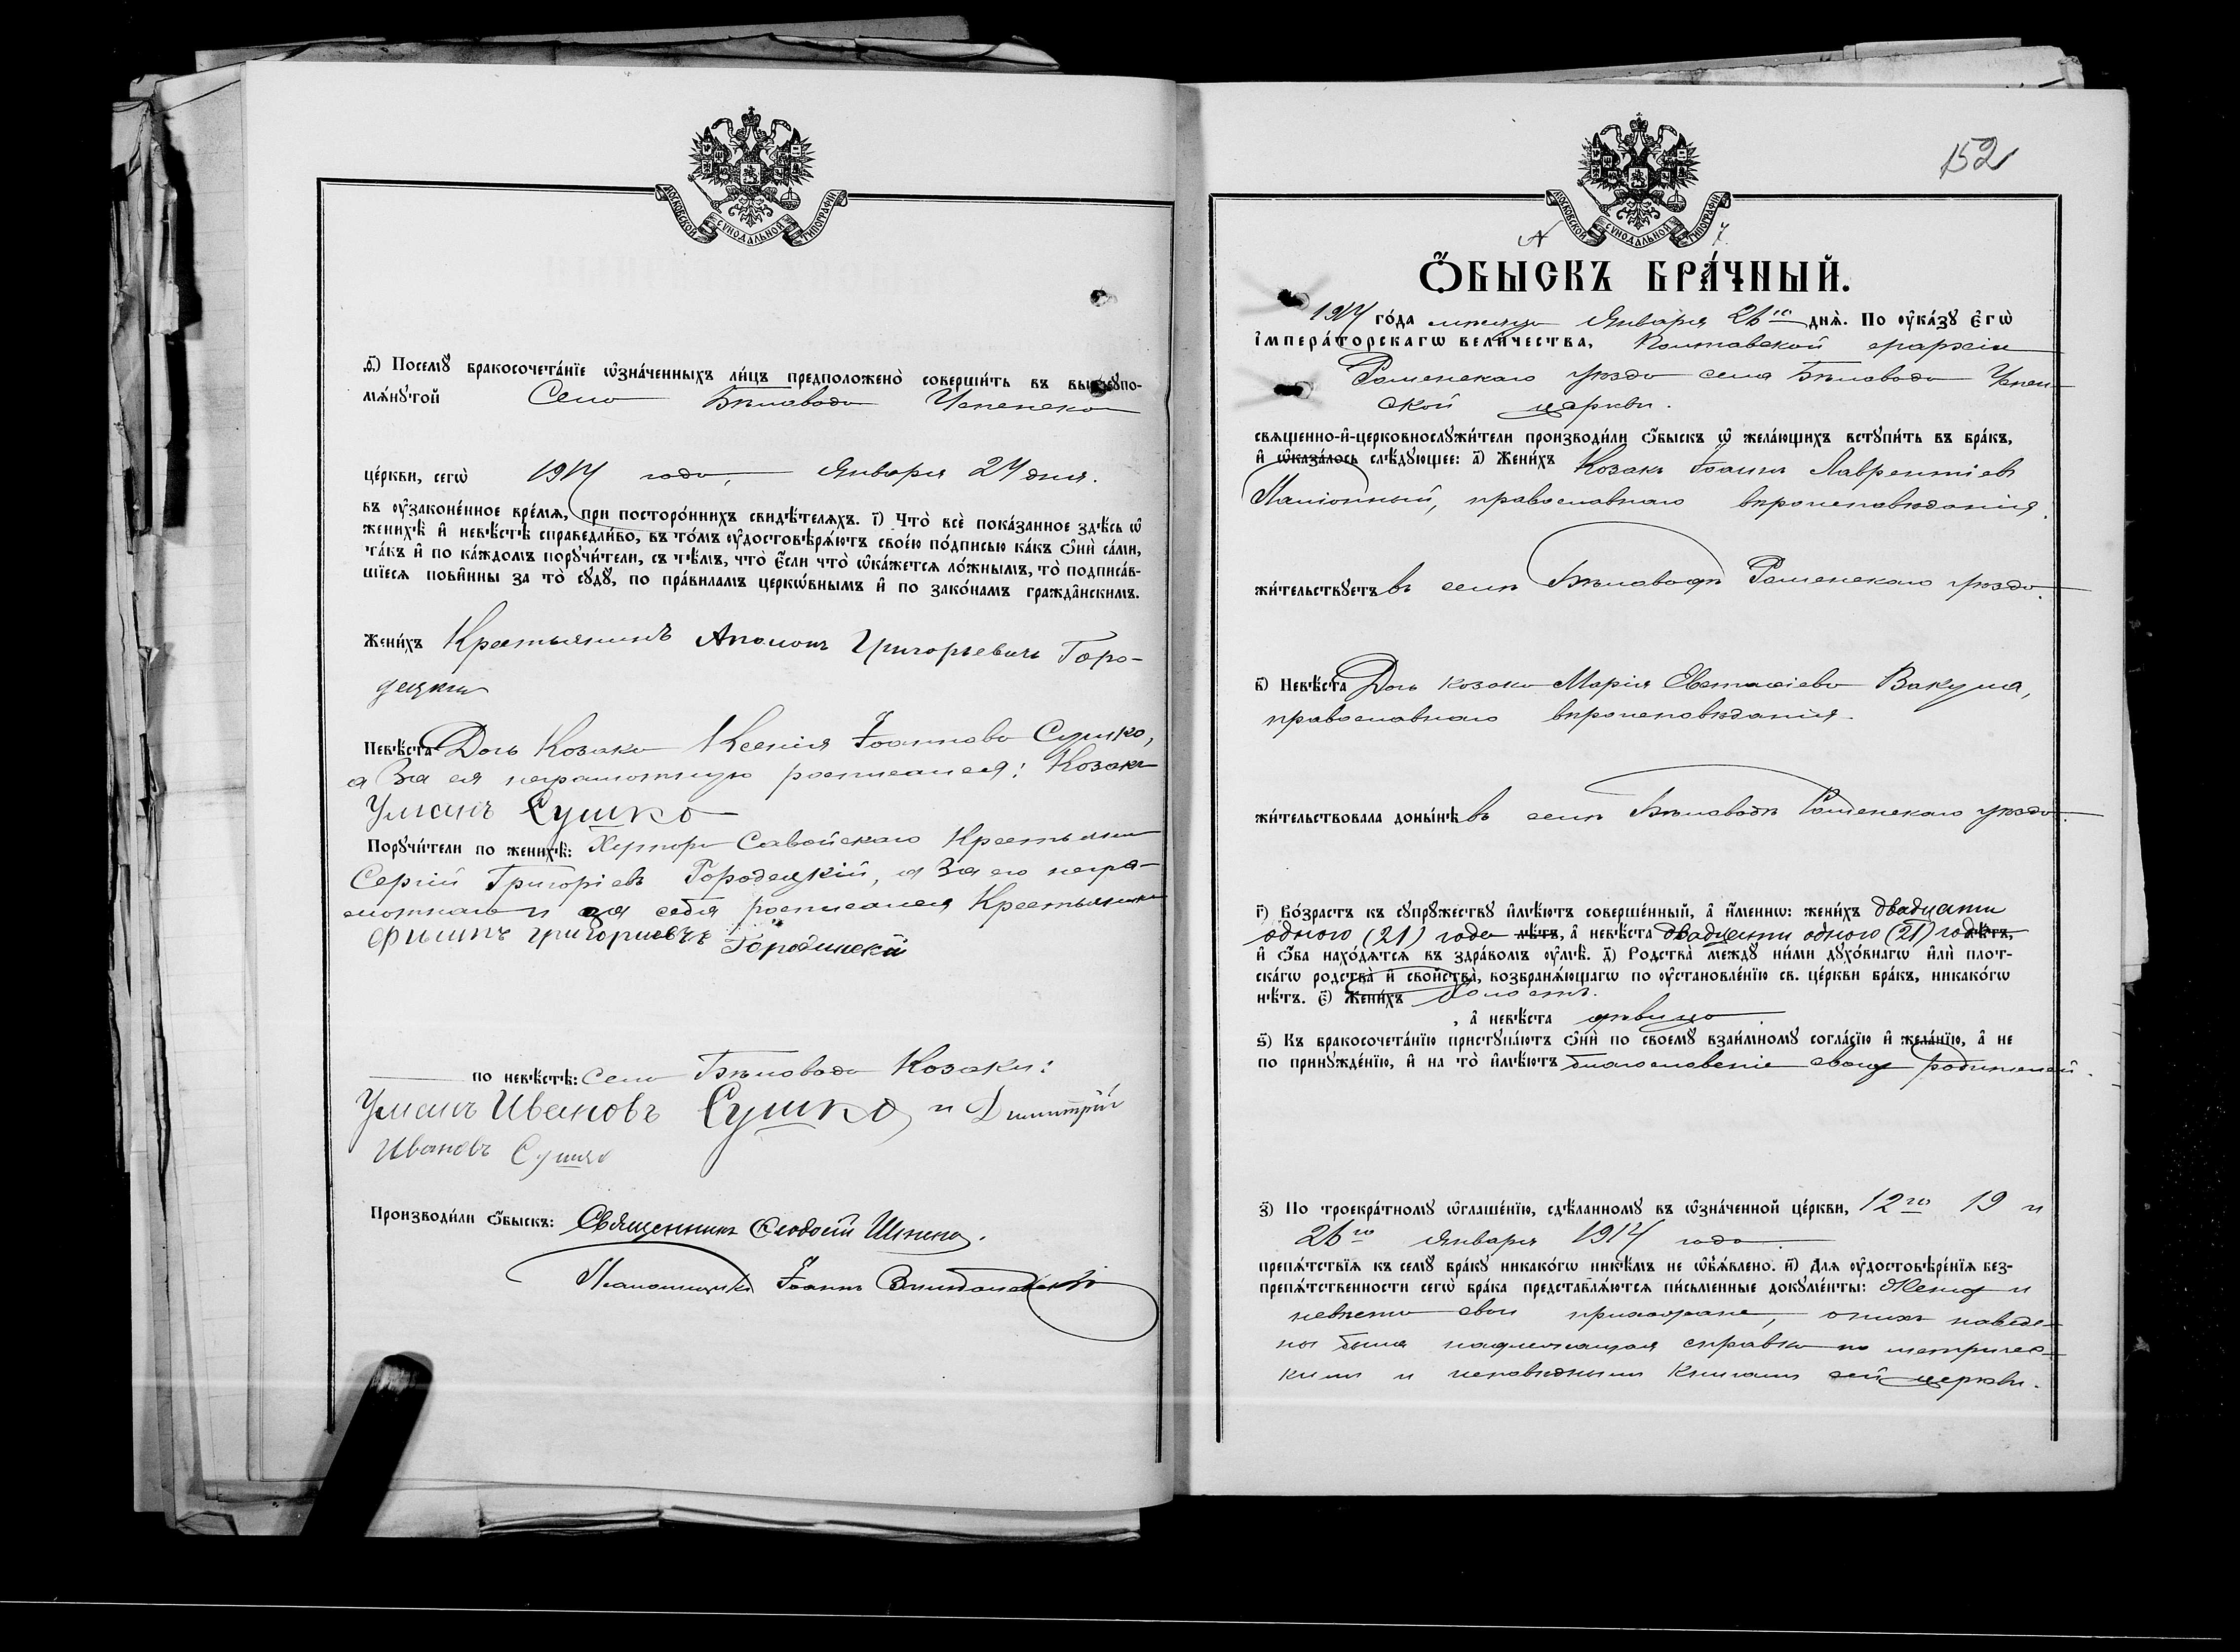 МОСКОВСКОЙ СѴНОДАЛЬНОЙ ТИПОГРАФІИ
ѳ҃) Посемꙋ̀ бракосочета́нїе ѡ҆зна́ченныхъ ли́цъ предположено̀ соверши́ть въ вышеꙋпо-
мѧ́нꙋтой Село Бѣловода Успенской
це́ркви, сегѡ̀ 1914 года, Января 27 дня.
въ ᲂу҆зако́ненное вре́мѧ, при посторо́ннихъ свидѣ́телѧхъ. і҃) Что̀ всѐ пока́занное здѣ́сь ѡ҆
женихѣ̀ и҆ невѣ́стѣ справедли́во, въ то́мъ ᲂу҆достовѣрѧ́ютъ свое́ю по́дписью ка́къ ѻ҆нѝ са́ми,
та́къ и҆ по ка́ждомъ порꙋчи́тели, съ тѣ́мъ, что̀ є҆́сли что̀ ѡ҆ка́жетсѧ ло́жнымъ, то̀ подписа́в-
шїесѧ пови́нны за то̀ сꙋдꙋ̀, по пра́виламъ церко́внымъ и҆ по зако́намъ гражда́нскимъ.
Жени́хъ Крестьянинъ Аполонъ Григорьевичъ Горо-
децкій
Невѣ́ста Дочь Козака Ксенія Іоаннова Сушко,
а За ея неграмотную росписался: Козакъ
Ульянъ Сушко
Порꙋчи́тели по женихѣ̀: Хутора Савойскаго Крестьяне
Сергій Григоріевъ Городецкій, а За его негра-
мотнаго и за себя росписался Крестьянинъ
Филипъ Григориевъ Городецкій
по невѣ́стѣ: Села Бѣловода Козаки:
Ульянъ Ивановъ Сушко, и Димитрій
Ивановъ Сушко
Производи́ли ѻ҆́быскъ: Священникъ Ѳеодосій
Псаломщикъ Іоаннъ
152
МОСКОВСКОЙ СѴНОДАЛЬНОЙ ТИПОГРАФІИ
7
Ѻ҆́БЫСКЪ БРА́ЧНЫЙ.
1914 го́да мѣсяца Января 26го днѧ̀. По ᲂу҆ка́зꙋ Є҆гѡ̀
І҆мпера́торскагѡ вели́чества, Полтавской епархіи
Роменскаго уѣзда села Бѣловода Успен-
ской церкви.
свѧщенно-и҆-церковнослꙋжи́тели производи́ли ѻ҆́быскъ ѡ҆ жела́ющихъ встꙋпи́ть въ бра́къ,
и҆ ѡ҆каза́лось слѣ́дꙋющее: а҃) Жени́хъ Козакъ Іоаннъ Лаврентіевъ
православнаго вѣроисповѣданія.
жи́тельствꙋетъ въ селѣ Бѣловодѣ Роменскаго уѣзда.
в҃) Невѣ́ста Дочь козака Марія Евстафіева Вакула,
православнаго вѣроисповѣданія.
жи́тельствовала доны́нѣ въ селѣ Бѣловодѣ Роменскаго уѣзда.
г҃) Во́зрастъ къ сꙋпрꙋ́жествꙋ и҆мѣ́ютъ соверше́нный, а҆ и҆́менно: жени́хъ двадцати
одного (21) года лѣ́тъ, а҆ невѣ́ста двадцати одного (21) года лѣ́тъ,
и҆ ѻ҆́ба нахо́дѧтсѧ въ здра́вомъ ᲂу҆мѣ̀. д҃) Родства̀ междꙋ ни́ми дꙋхо́внагѡ и҆лѝ плот-
ска́гѡ родства̀ и҆ сво́йства̀, возбранѧ́ющагѡ по ᲂу҆становле́нїю св. це́ркви бра́къ, никако́гѡ
нѣ́тъ. є҃) Жени́хъ холостъ.
, а҆ невѣ́ста дѣвица.
ѕ҃) Къ бракосочета́нїю пристꙋпа́ютъ ѻ҆нѝ по своемꙋ̀ взаи́мномꙋ согла́сїю и҆ жела́нїю, а҆ не
по принꙋжде́нїю, и҆ на то̀ и҆мѣ́ютъ благословеніе своихъ родителей.
з҃) По троекра́тномꙋ ѡ҆глаше́нїю, сдѣ́ланномꙋ въ ѡ҆зна́ченной це́ркви, 12го 19 и
26го Января 1914 года.
препѧ́тствїѧ къ семꙋ̀ бра́кꙋ никако́гѡ никѣ́мъ не ѡ҆б̾ѧ́влено. и҃) Длѧ ᲂу҆достовѣре́нїѧ без-
препѧ́тственности сегѡ̀ бра́ка представлѧ́ютсѧ пи́сьменные докꙋме́нты: Женихъ и
невѣста свои прихожане, о нихъ наведе-
на была надлежащая справка по метричес-
кимъ и исповѣднымъ книгамъ сей церкви.